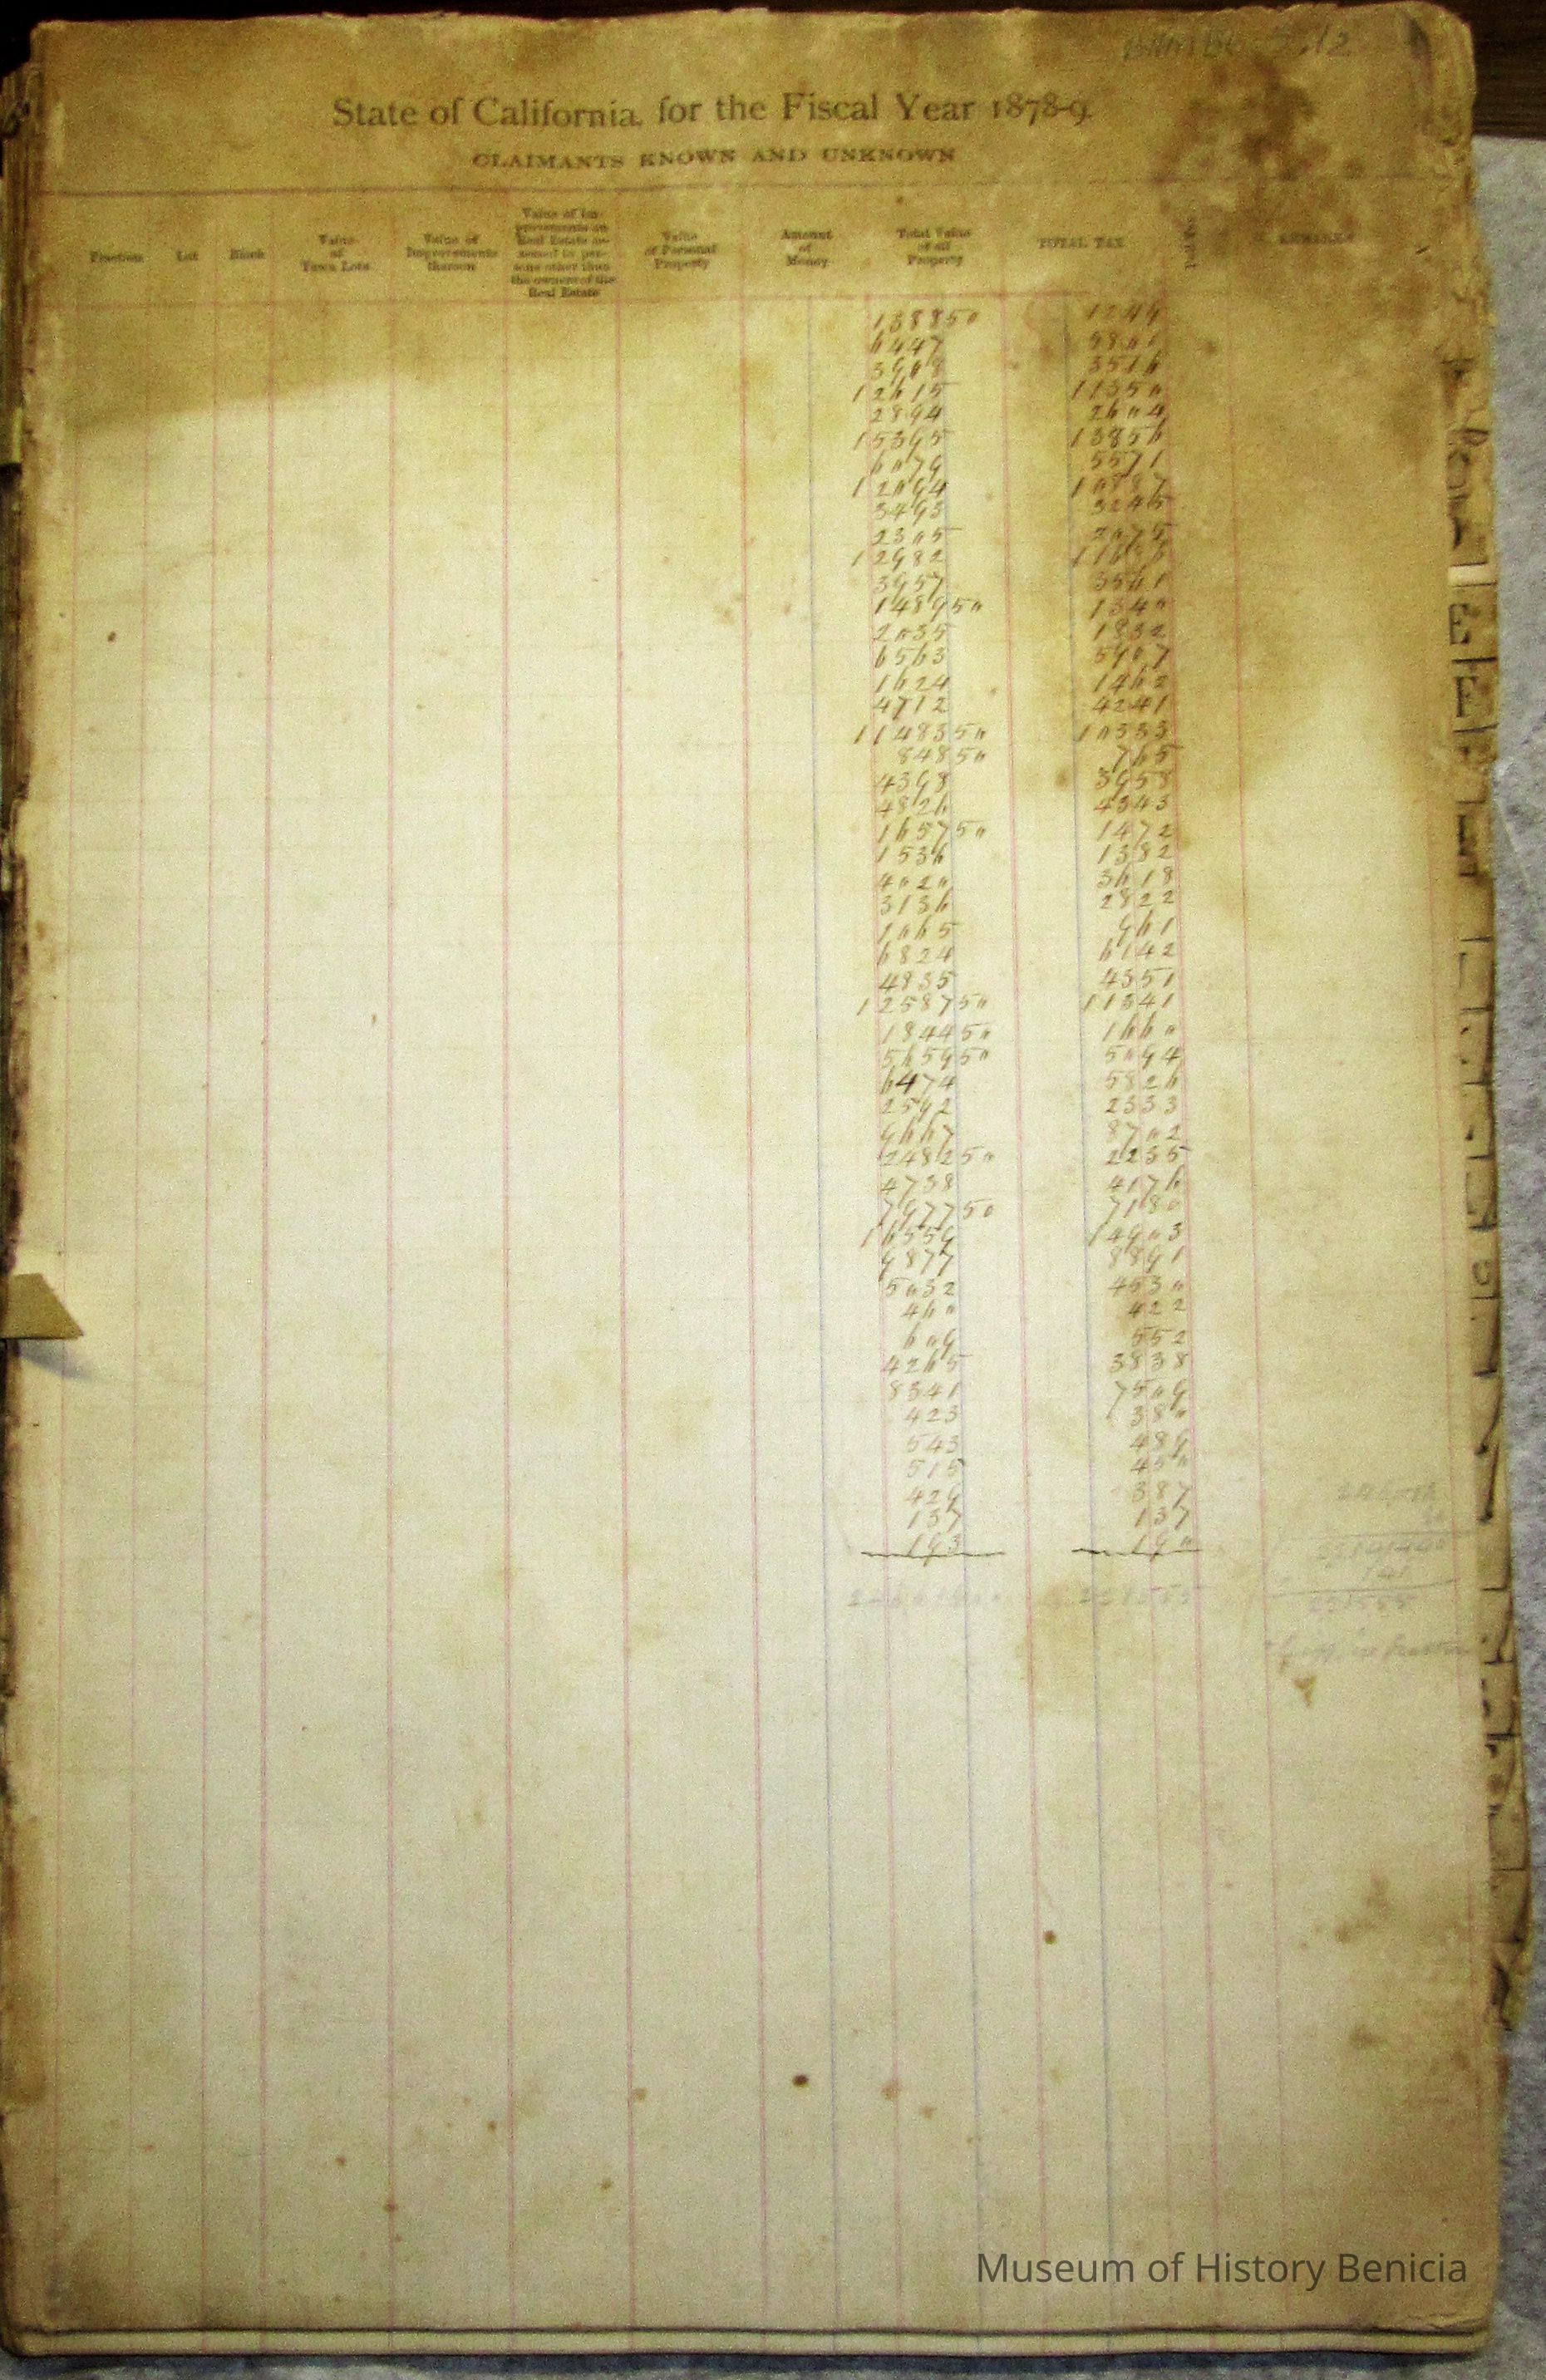 State of California, for the Fiscal Year 1878-9.
CLAIMANTS KNOWN AND UNKNOWN
Fraction Lot Block Value of Town Lots Value of Improvements thereon Value of Improvements on Real Estate assessed to persons other than the owners of the Real Estate Value of Personal Property Amount of Money Total Value of all Property TOTAL TAX REMARKS
138850 1249
6447 5801
3908 3516
12615 11350
2894 2604
15395 13856
6079 5571
12094 10887
3493 3245
2305 2075
12982
3957 3561
148950 1340
2035 1832
6563 5907
1624 1462
4712 4241
1148350 10333
84850 765
4398 3958
4826 4343
165750 1472
1536 1382
4020 3618
3136 2822
1065 961
6824 6142
4835 4351
1258750 11341
184450 1660
565950 5094
6474 5826
2592 2333
9667 8702
248250 2235
4738 4176
797750 7180
16559 14903
9877 8891
5032 4530
460 422
609 552
4265 3838
8341 7509
423 380
543 489
515 450
429 387
137 137
193 190
141
231555
Museum of History Benicia